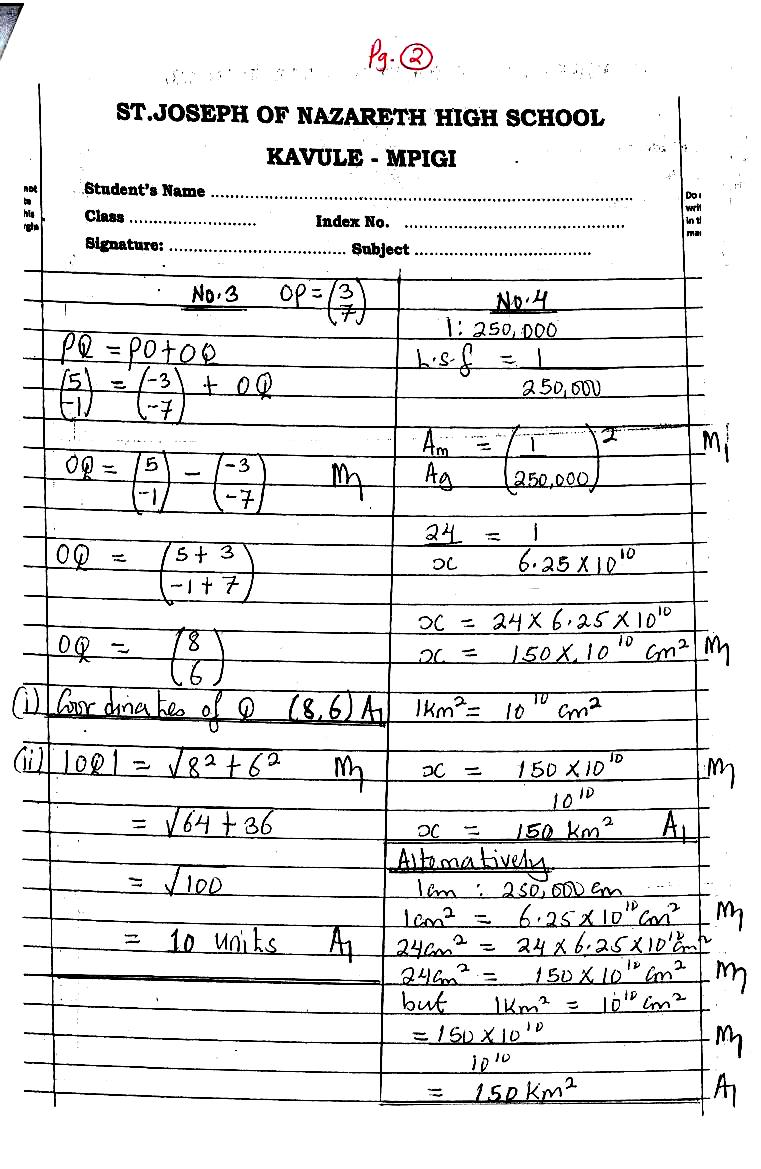 Pg. 2
ST.JOSEPH OF NAZARETH HIGH SCHOOL
KAVULE - MPIGI
Student's Name
Class Index No.
Signature: Subject
not
his
rgin
in
No.3 OP = (3 7)
PQ = PO + OQ
(5 -1) = (-3 -7) + OQ
OQ = (5 -1) - (-3 -7) M1
OQ = (5+3 -1+7)
OQ = (8 6)
(i) Coordinates of Q (8,6) A1
(ii) |OQ| = √8² + 6² M1
= √64 + 36
= √100
= 10 units A1
No.4
1: 250,000
L.s.f = 1
250,000
Am = (1 )² M1
Ag (250,000)
24 = 1
x 6.25 X 10¹⁰
x = 24 X 6.25 X 10¹⁰
x = 150 X 10¹⁰ cm² M1
1km² = 10¹⁰ cm²
x = 150 X 10¹⁰ M1
10¹⁰
x = 150 km² A1
Alternatively
1cm : 250,000 cm
1cm² = 6.25 X 10¹⁰ cm² M1
24cm² = 24 X 6.25 X 10¹⁰ cm²
24cm² = 150 X 10¹⁰ cm² M1
but 1km² = 10¹⁰ cm²
= 150 X 10¹⁰ M1
10¹⁰
= 150 Km² A1